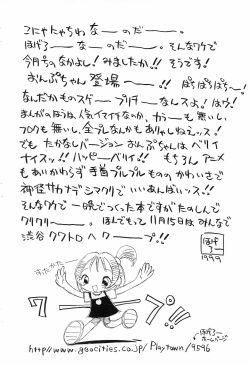 こにゃにゃちわ なーのだーー。
ほげろーーなーのだー。そんなワケで
今月号のなかよし!みましたか!! そうです!
おんぷちゃん登場ーー!! ぱちぱちぱち〜!
なんだかものスゲープリチーなんスよ!はウ!
まんがのほうは、人気イマイチなのか、カラーも悪いし
フロクも無いし、全プレなんかもありゃしねえッス!
でも たかなしバージョン おんぷちゃんは、ベリィ
ナイスッ!! ハッピーベリィ!! もちろん アニメ
もあいかわらず 手首プルプル ものの かわいさで
神経サカナデシマクリで いいあんばいッス!!
そんなワケで 一晩でつくった本ですが たのしんで
クリクリー。ほんでもって 11月15日は みんなで
渋谷クワトロへクーープ!!
ほげろー
1999
すったかた
ワープ!!
ほげろーホームページ
http://www.geocities.co.jp/Playtown/9596